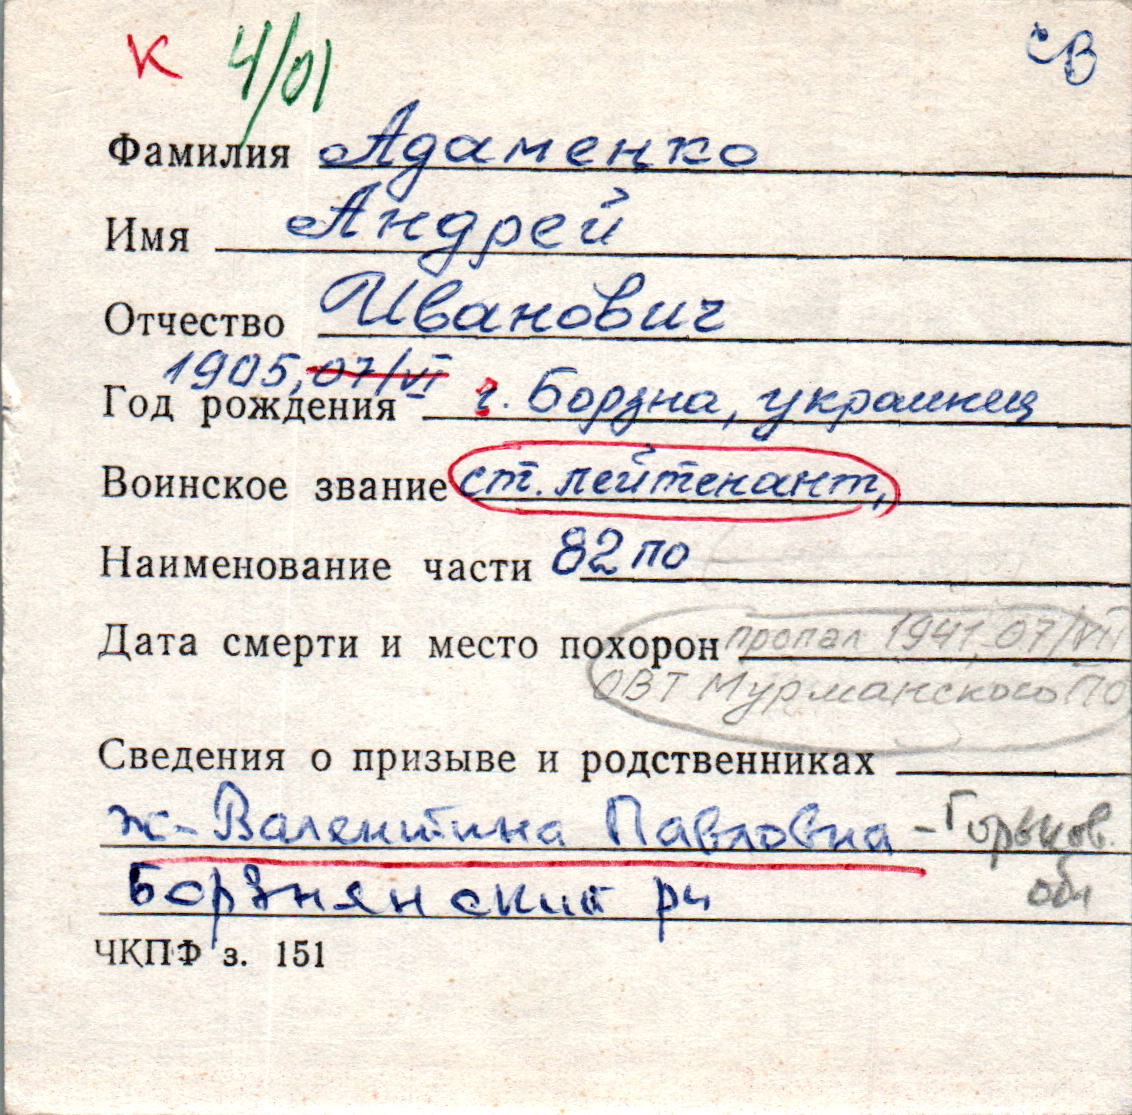 К 4/01 СВ
Фамилия Адаменко
Имя Андрей
Отчество Иванович
1905, 07/VI
Год рождения г. Борзна, украинец
Воинское звание ст. лейтенант,
Наименование части 82 ПО
Дата смерти и место похорон пропал 1941, 07/VII
ОВТ Мурманского ПО
Сведения о призыве и родственниках
ж- Валентина Павловна - Горьков.
Борзнянский рн обл
ЧКПФ з. 151